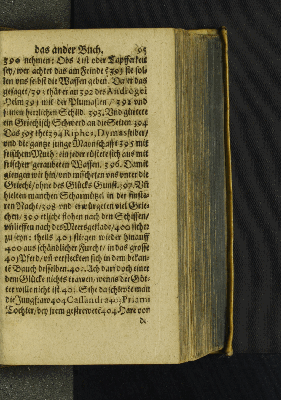 das ander Buch. 95
390 nehmen: Obs List oder Tapfferkeit
sey/ wer achtet das am Feinde? 391 sie sol-
len uns selbst die Waffen geben. Da er das
gesaget/ 392 thät er an 392 des Androgei
Helm 391 mit der Plumasien/ 392 und
seinen herrlichen Schild 393. Und gürtete
ein Griechisch Schwerd an die Seiten 394
Das 393 thet 394 Ripheus, Dymas selber/
und die gantze junge Manschafft 395 mit
frischem Muth: ein jeder rüstete sich aus mit
frischen geraubeten Waffen. 396. Damit
giengen wir hin/ und mischeten uns unter die
Griechē/ ohne des Glücks Gunst. 397. Uñ
hielten manchen Scharmützel in der finste-
ren Nacht/ 398 und erwürgeten viel Grie-
chen/ 399 etliche flohen nach den Schiffen/
uñ lieffen nach des Meersgestade/ 400 sicher
zu seyn: theils 401 stiegen wieder hinauff
400 aus schändlicher Furcht/ in das grosse
401 Pferd/ uñ versteckten sich in dem bekan-
te Bauch desselben. 402. Ach darff doch einer
dem Glücke nichts trauen/ wenns der Göt-
ter wille nicht ist. 403. Sihe da schlepte man
die Jungfraw 404 Cassandra 403 Priami
Tochter/ bey ihren gestreweten 404 Hare von